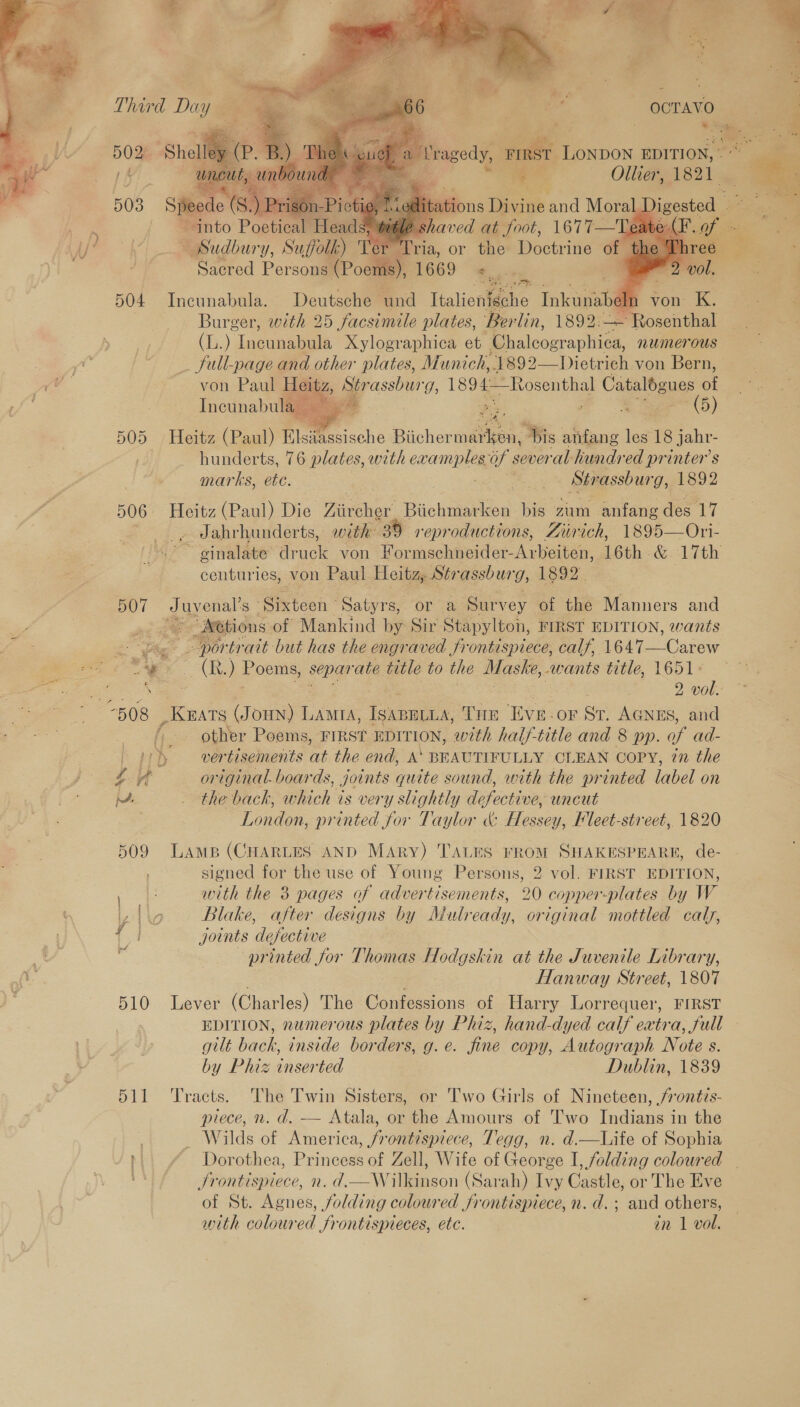 Third Day 66 OCTAVO
502 Shelley (P. B.) The Cenci, a Tragedy, FIRST LONDON EDITION,
uncut, unbound Ollier, 1821
503 Speede (S.) Prison-Pietie, Meditations Divine and Moral Digested
into Poetical Heads, title shaved at foot, 1677—Teate (F. of
Sudbury, Suffolk) Ter Tria, or the Doctrine of the Three
Sacred Persons (Poems), 1669 2 vol.
504 Incunabula. Deutsche und Italienische Inkunabeln von K.
Burger, with 25 facsimile plates, Berlin, 1892.—Rosenthal
(L.) Incunabula Xylographica et Chalcographica, numerous
full-page and other plates, Munich, 1892—Dietrich von Bern,
von Paul Heitz, Strassburg, 1894—Rosenthal Catalogues of
Incunabula (5)
505 Heitz (Paul) Elsässische Büchermarken, bis anfang les 18 jahr-
hunderts, 76 plates, with examples of several hundred printer's
marks, etc. Strassburg, 1892
506 Heitz (Paul) Die Zürcher Büchmarken bis zum anfang des 17
Jahrhunderts, with 39 reproductions, Zürich, 1895—Ori-
ginalate druck von Formschneider-Arbeiten, 16th & 17th
centuries, von Paul Heitz, Strassburg, 1892
507 Juvenal's Sixteen Satyrs, or a Survey of the Manners and
Actions of Mankind by Sir Stapylton, FIRST EDITION, wants
portrait but has the engraved frontispiece, calf, 1647—Carew
(R.) Poems, separate title to the Maske, wants title, 1651
2 vol.
508 KEATS (JOHN) LAMIA, ISABELLA, THE EVE OF ST. AGNES, and
other Poems, FIRST EDITION, with half-title and 8 pp. of ad-
vertisements at the end, A BEAUTIFULLY CLEAN COPY, in the
original boards, joints quite sound, with the printed label on
the back, which is very slightly defective, uncut
London, printed for Taylor & Hessey, Fleet-street, 1820
509 LAMB (CHARLES AND MARY) TALES FROM SHAKESPEARE, de-
signed for the use of Young Persons, 2 vol. FIRST EDITION,
with the 3 pages of advertisements, 20 copper-plates by W
Blake, after designs by Mulready, original mottled calf,
joints defective
printed for Thomas Hodgskin at the Juvenile Library,
Hanway Street, 1807
510 Lever (Charles) The Confessions of Harry Lorrequer, FIRST
EDITION, numerous plates by Phiz, hand-dyed calf extra, full
gilt back, inside borders, g. e. fine copy, Autograph Note s.
by Phiz inserted Dublin, 1839
511 Tracts. The Twin Sisters, or Two Girls of Nineteen, frontis-
piece, n. d. — Atala, or the Amours of Two Indians in the
Wilds of America, frontispiece, Tegg, n. d.—Life of Sophia
Dorothea, Princess of Zell, Wife of George I, folding coloured
frontispiece, n. d.—Wilkinson (Sarah) Ivy Castle, or The Eve
of St. Agnes, folding coloured frontispiece, n. d. ; and others,
with coloured frontispieces, etc. in 1 vol.